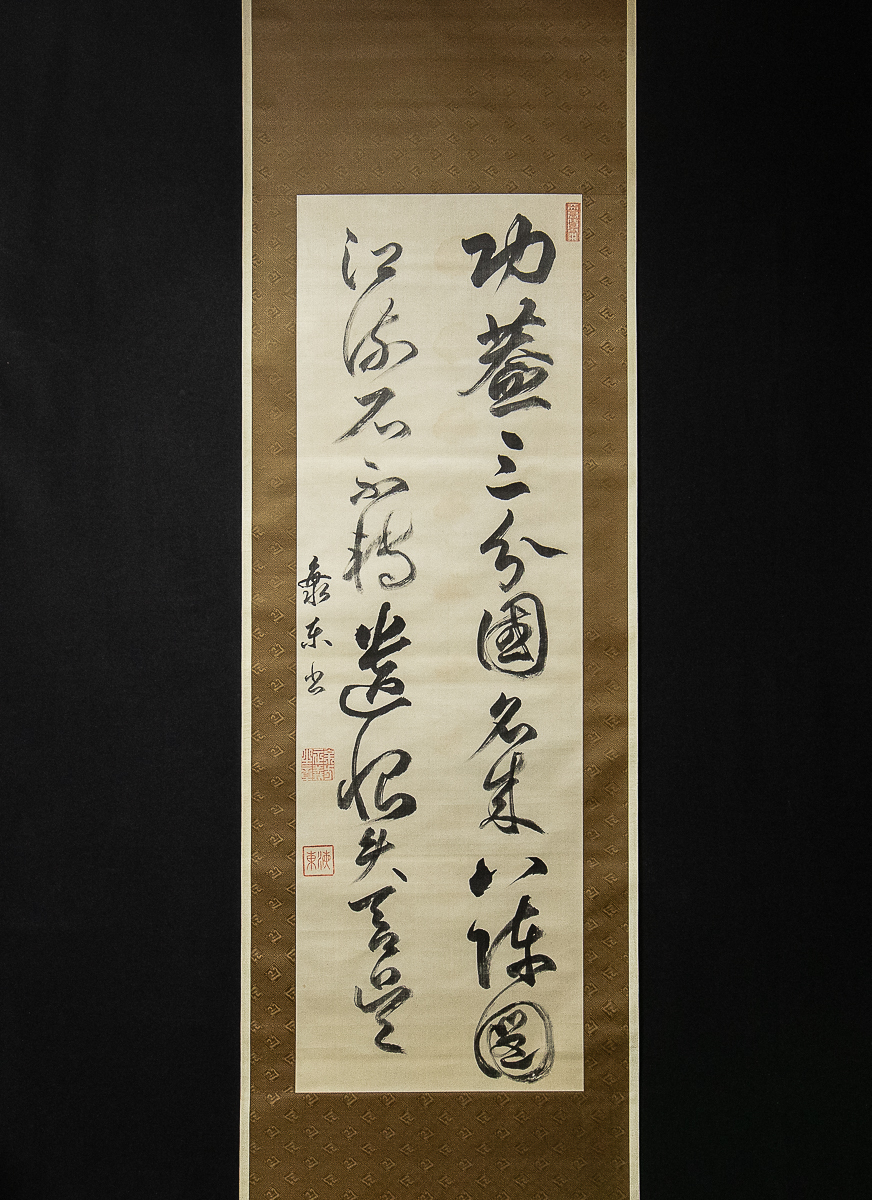 功蓋三分國名成八陣圖
江流石不轉遺恨失吞吳
海東書
海東